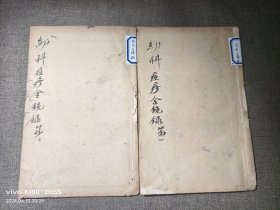 幼科痘疹金镜录第一
幼科痘疹金镜录第二
vivo X100 · ZEISS
2024.04.10 20:29